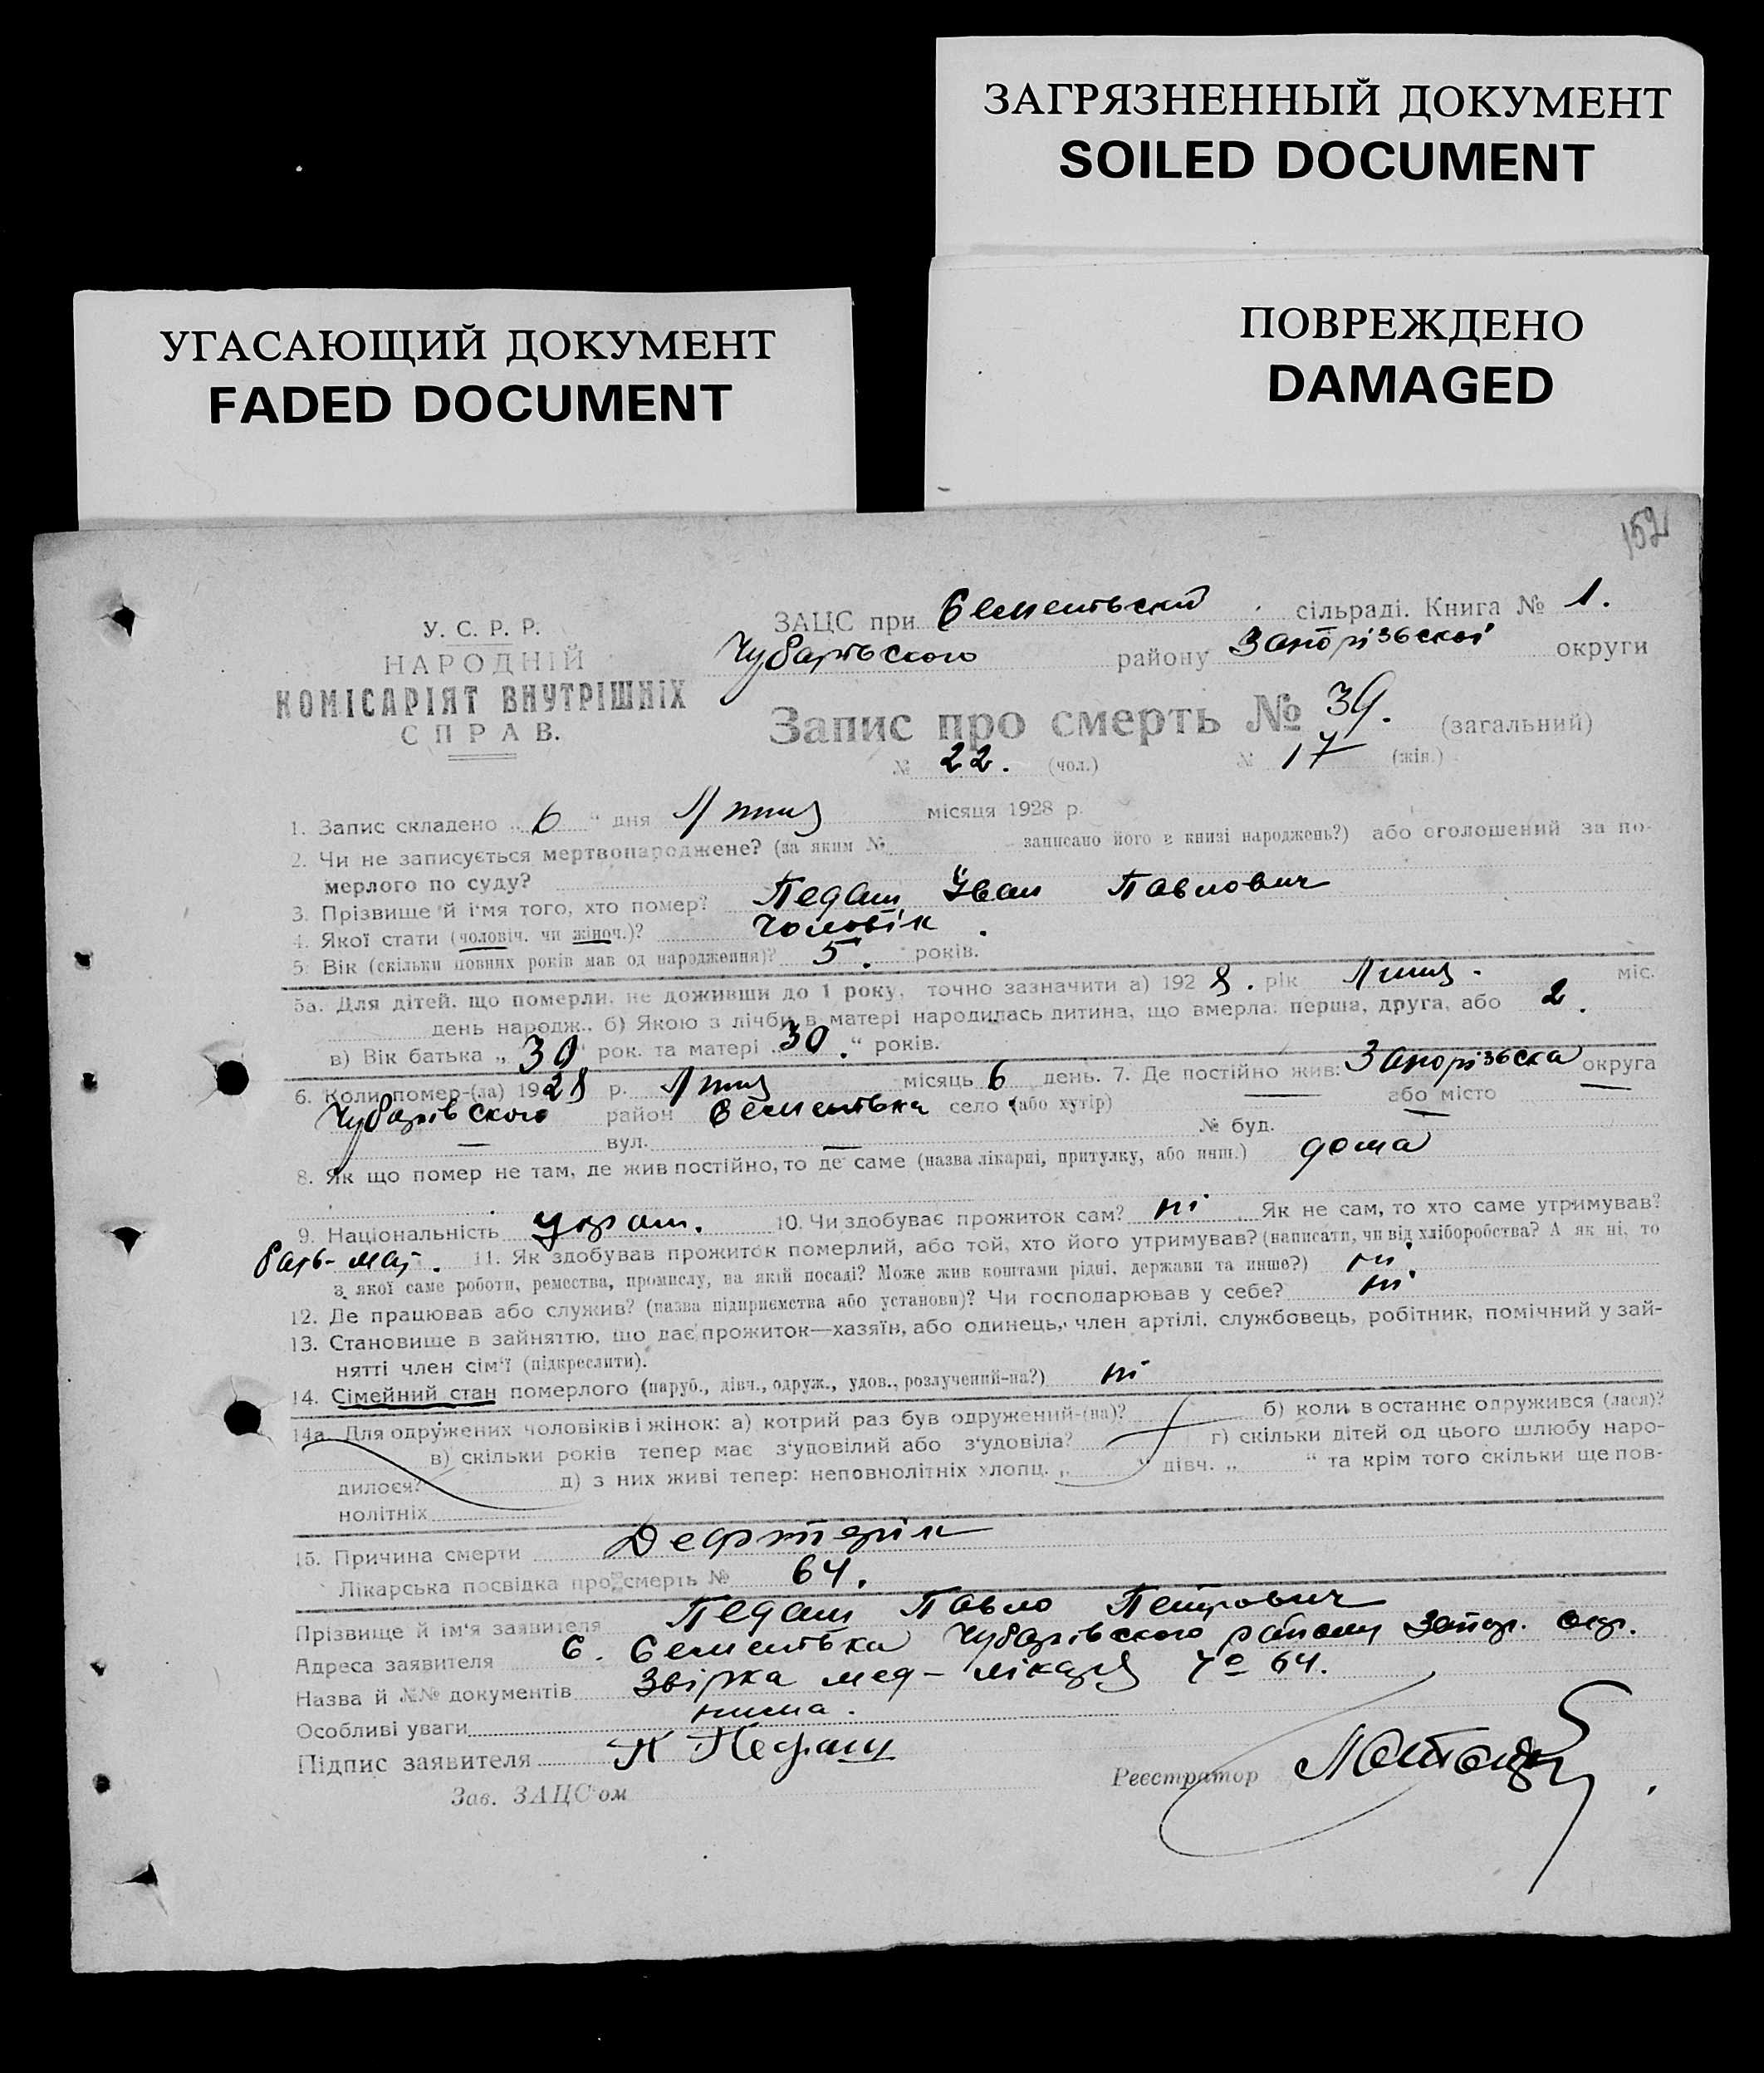 ЗАГРЯЗНЕННЫЙ ДОКУМЕНТ
SOILED DOCUMENT
УГАСАЮЩИЙ ДОКУМЕНТ
FADED DOCUMENT
ПОВРЕЖДЕНО
DAMAGED
152
У. С. Р. Р.
НАРОДНІЙ
КОМІСАРІЯТ ВНУТРІШНІХ
СПРАВ.
ЗАЦС при Сементьскій сільраді. Книга № 1.
Чубарівського району Запорізьскої округи
Запис про смерть № 39. (загальний)
№ 22. (чол.) № 17 (жін.)
1. Запис складено „ 6 “ дня Липня місяця 1928 р.
2. Чи не записується мертвонароджене? (за яким № записано його в книзі народжень?) або оголошений за по-
мерлого по суду?
3. Прізвище й ім'я того, хто помер? Педаш Іван Павлович
4. Якої стати (чоловіч. чи жіноч.)? Чоловік.
5. Вік (скільки повних років мав од народження)? 5. років.
5а. Для дітей, що померли, не доживши до 1 року, точно зазначити а) 1928. рік Липня. міс.
день народж., б) Якою з лічби в матері народилась дитина, що вмерла: перша, друга, або 2.
в) Вік батька „ 30 “ рок. та матері „ 30. “ років.
6. Коли помер-(ла) 1928 р. Липня місяць 6 день. 7. Де постійно жив: Запорізьска округа
Чубарівского район Сементьвка село (або хутір) — або місто —
— вул. — № буд.
8. Як що помер не там, де жив постійно, то де саме (назва лікарні, притулку, або инш.) дома
9. Національність україн. 10. Чи здобуває прожиток сам? ні. Як не сам, то хто саме утримував?
батьк- мат. 11. Як здобував прожиток померлий, або той, хто його утримував? (написати, чи від хліборобства? А як ні, то
з якої саме роботи, ремества, промислу, на якій посаді? Може жив коштами рідні, держави та инше?) ні
12. Де працював або служив? (назва підприємства або установи)? Чи господарював у себе? ні
13. Становище в зайняттю, що дає прожиток—хазяїн, або одинець, член артілі, службовець, робітник, помічний у зай-
нятті член сім'ї (підкреслити).
14. Сімейний стан померлого (паруб., дівч., одруж., удов., розлучений-на?) ні
14а. Для одружених чоловіків і жінок: а) котрий раз був одружений-(на)? б) коли в останнє одружився (лася)?
в) скільки років тепер має з'уповілий або з'удовіла? г) скільки дітей од цього шлюбу наро-
дилося? д) з них живі тепер: неповнолітніх хлопц. „ “ дівч. „ “ та крім того скільки ще пов-
нолітніх
15. Причина смерти Дефтерік
Лікарська посвідка про смерть № 64.
Прізвище й ім'я заявителя Педаш Павло Петрович
Адреса заявителя С. Сементьвка Чубарівского району Запор. окр.
Назва й №№ документів Звірка мед- лікаря № 64.
Особливі уваги нима.
Підпис заявителя П Педаш
Зав. ЗАЦС'ом
Реєстратор